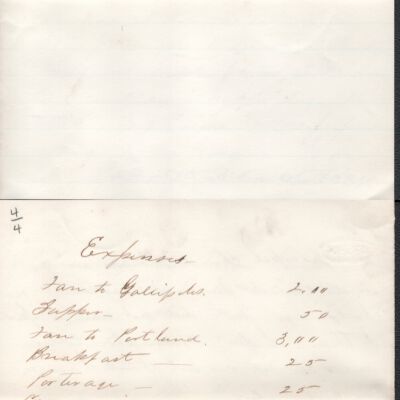 4/4
Expenses
Fare to Gallipolis. 2,"
Supper 50
Fare to Portland. 3,"
Breakfast — 25
Porterage — 25